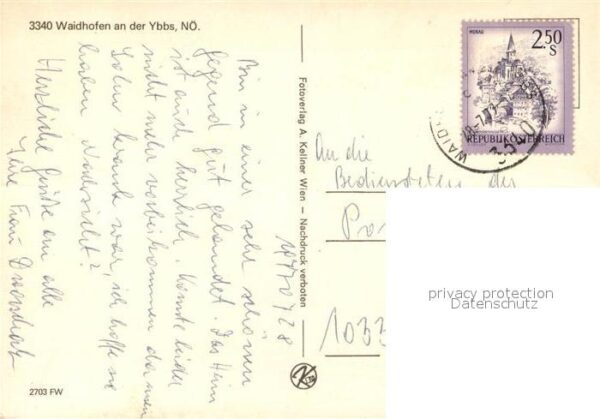 3340 Waidhofen an der Ybbs, NÖ.
Bin in einer sehr schönen
Gegend gut gelandet. Das Heim
ist auch herrlich. Konnte leider
nicht mehr vorbeikommen da mein
Sohn krank war, ich hoffe sie
haben Nachsicht?
Herzliche Grüße an alle
Ihre Frau
Fotoverlag A. Kellner Wien – Nachdruck verboten
2703 FW
MURAU
2.50
S
REPUBLIK ÖSTERREICH
WAIDH
An die
Bediensteten der
Po
1033
privacy protection
Datenschutz